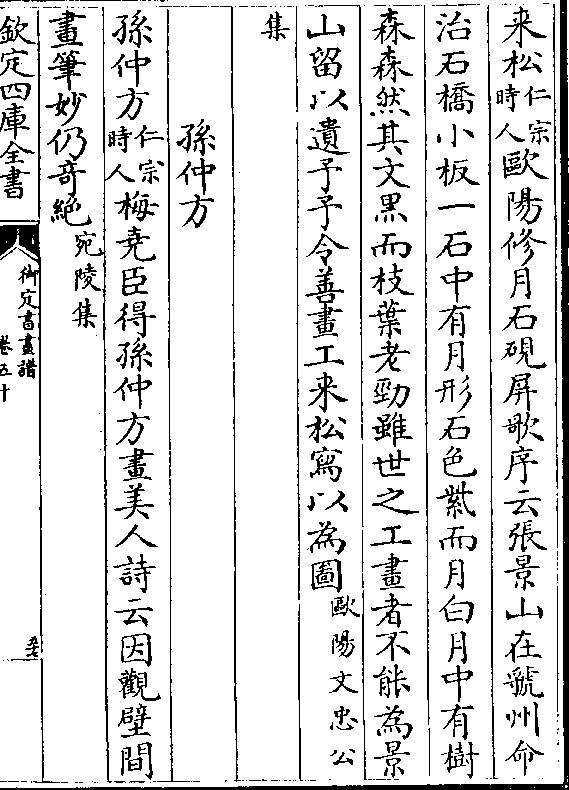 来松仁宗時人歐陽修月石硯屏歌序云張景山在虢州命
治石橋小板一石中有月形石色紫而月白月中有樹
森森然其文黑而枝葉老勁雖世之工畫者不能為景
山留以遺予予令善畫工来松寫以為圖歐陽文忠公
集
孫仲方
孫仲方仁宗時人梅堯臣得孫仲方畫美人詩云因觀壁間
畫筆妙仍奇絶宛陵集
欽定四庫全書
御定書畫譜
卷五十